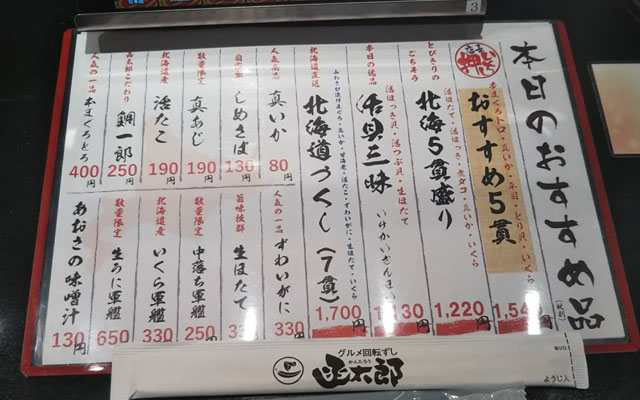 本日のおすすめ品
(税別)
店長
本まぐろトロ・真いか・本日・とり貝・いくら
おすすめ5貫
とびきりのごちそう
活ほたて・活ほっき・煮ダコ・真いか・いくら
北海5貫盛り
1,220円
本日の逸品
活ほっき貝・活つぶ貝・生ほたて
活貝三昧
いけがいざんまい
北海道直送
北海道づくし(7貫)
1,700円
人気商品
真いか
80円
しめさば
130円
数量限定
真あじ
190円
北海道産
活たこ
190円
函太郎こだわり
鯛一郎
250円
人気の一品
本まぐろとろ
400円
人気の一品
ずわいがに
330円
旨味抜群
生ほたて
数量限定
中落ち軍艦
250円
北海道産
いくら軍艦
330円
数量限定
生うに軍艦
650円
あおさの味噌汁
130円
グルメ回転ずし
かんたろう
函太郎
ようじ入
3